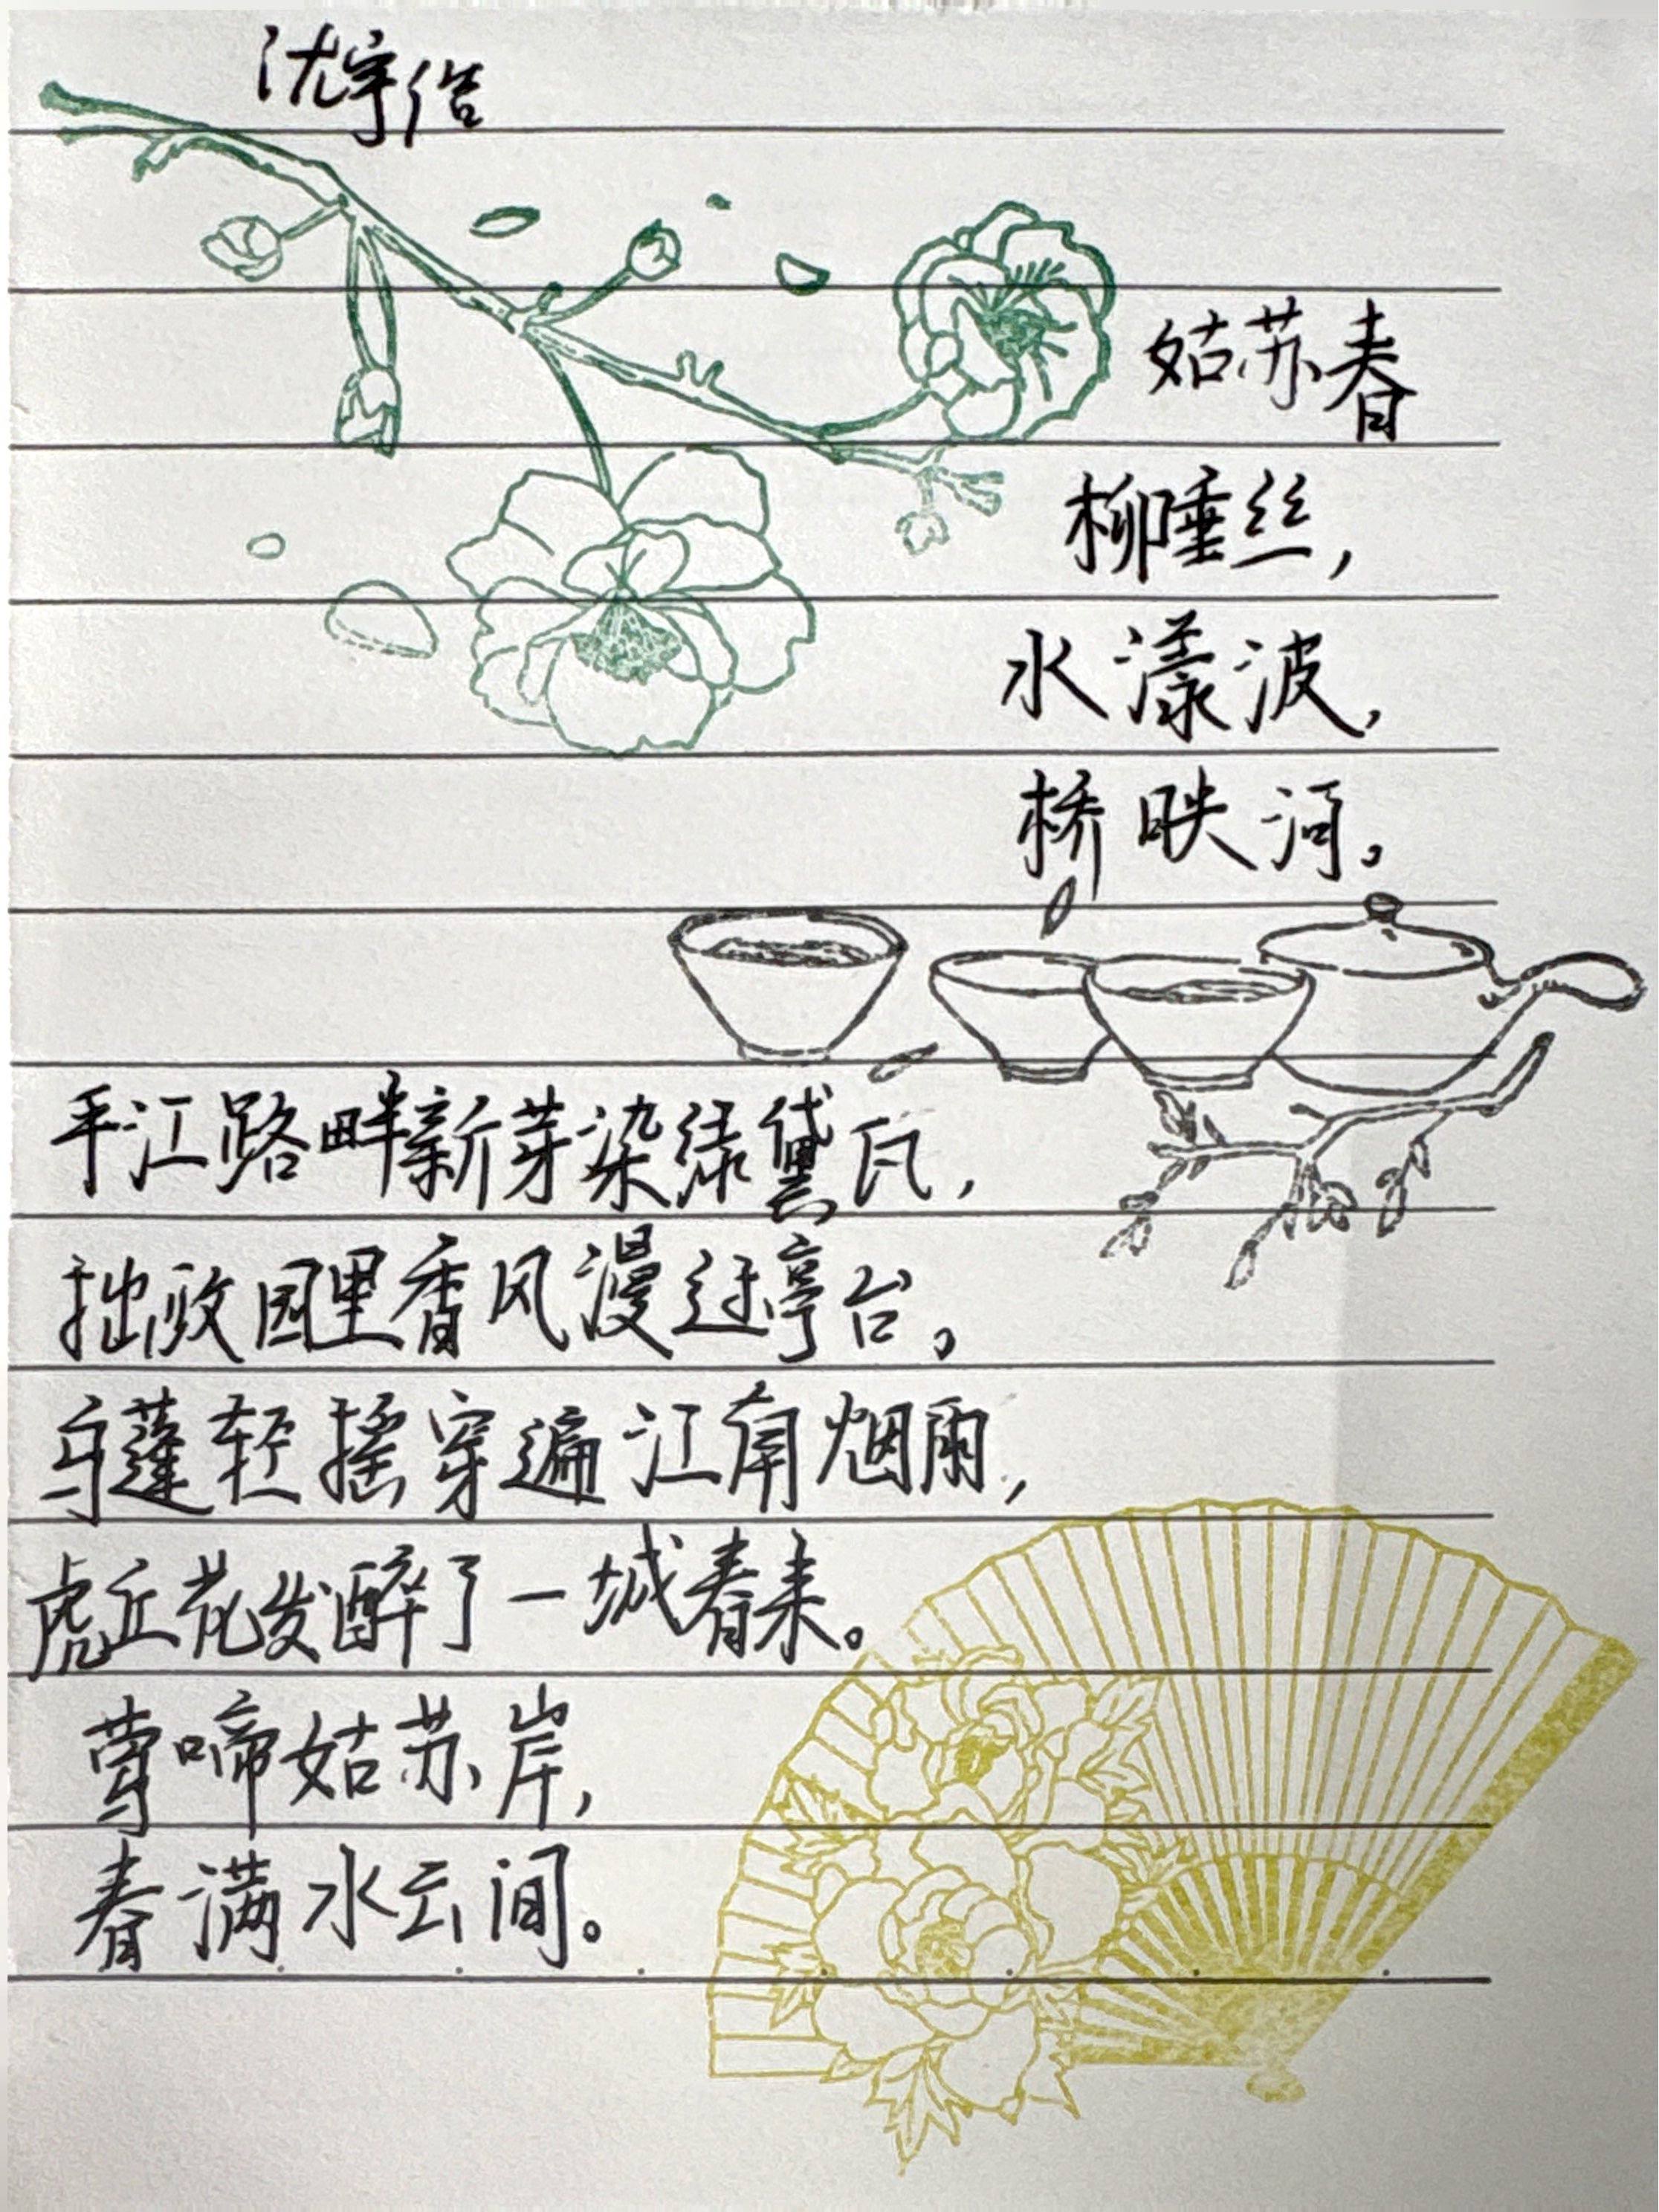 沈宇
姑苏春
柳睡丝，
水漾波，
桥映河。
平江路畔新芽染绿黛瓦，
拙政园里香风漫过亭台。
乌蓬轻摇穿遍江南烟雨，
虎丘花发醉了一城春来。
莺啼姑苏岸，
春满水云间。